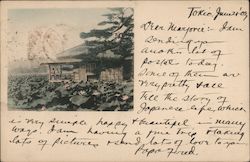 Tokio Jan 21/03
Dear Marjorie:- I am
sending you
another lot of
postal today.
Some of them are
very pretty & all
tell the story of
Japanese life which
is very simple happy & beautiful in many
ways. I am having a fine trip taking
lots of pictures & send lots of love to you
Papa Fred